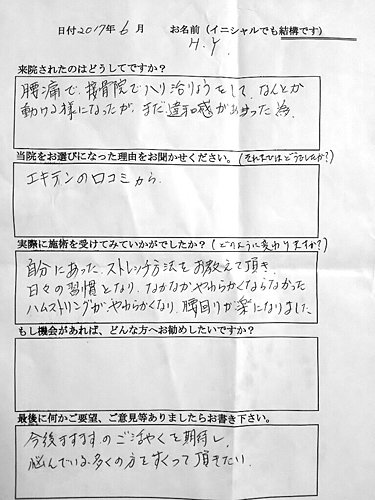 日付 2017年 6 月　お名前（イニシャルでも結構です）
H.Y.
来院されたのはどうしてですか？
腰痛で、接骨院でハリ治りょうをして、なんとか
動ける様になったが、まだ違和感があった為
当院をお選びになった理由をお聞かせください。（それまではどうでしたか？）
エキテンの口コミから
実際に施術を受けてみていかがでしたか？（どのように変わりますか？）
自分にあった、ストレッチ方法をお教えて頂き、
日々の習慣となり、なかなかやわらかくならなかった
ハムストリングがやわらかくなり、腰回りが楽になりました
もし機会があれば、どんな方へお勧めしたいですか？
最後に何かご要望、ご意見等ありましたらお書き下さい。
今後ますますのご活やくを期待し、
悩んでいる多くの方をすくって頂きたい。